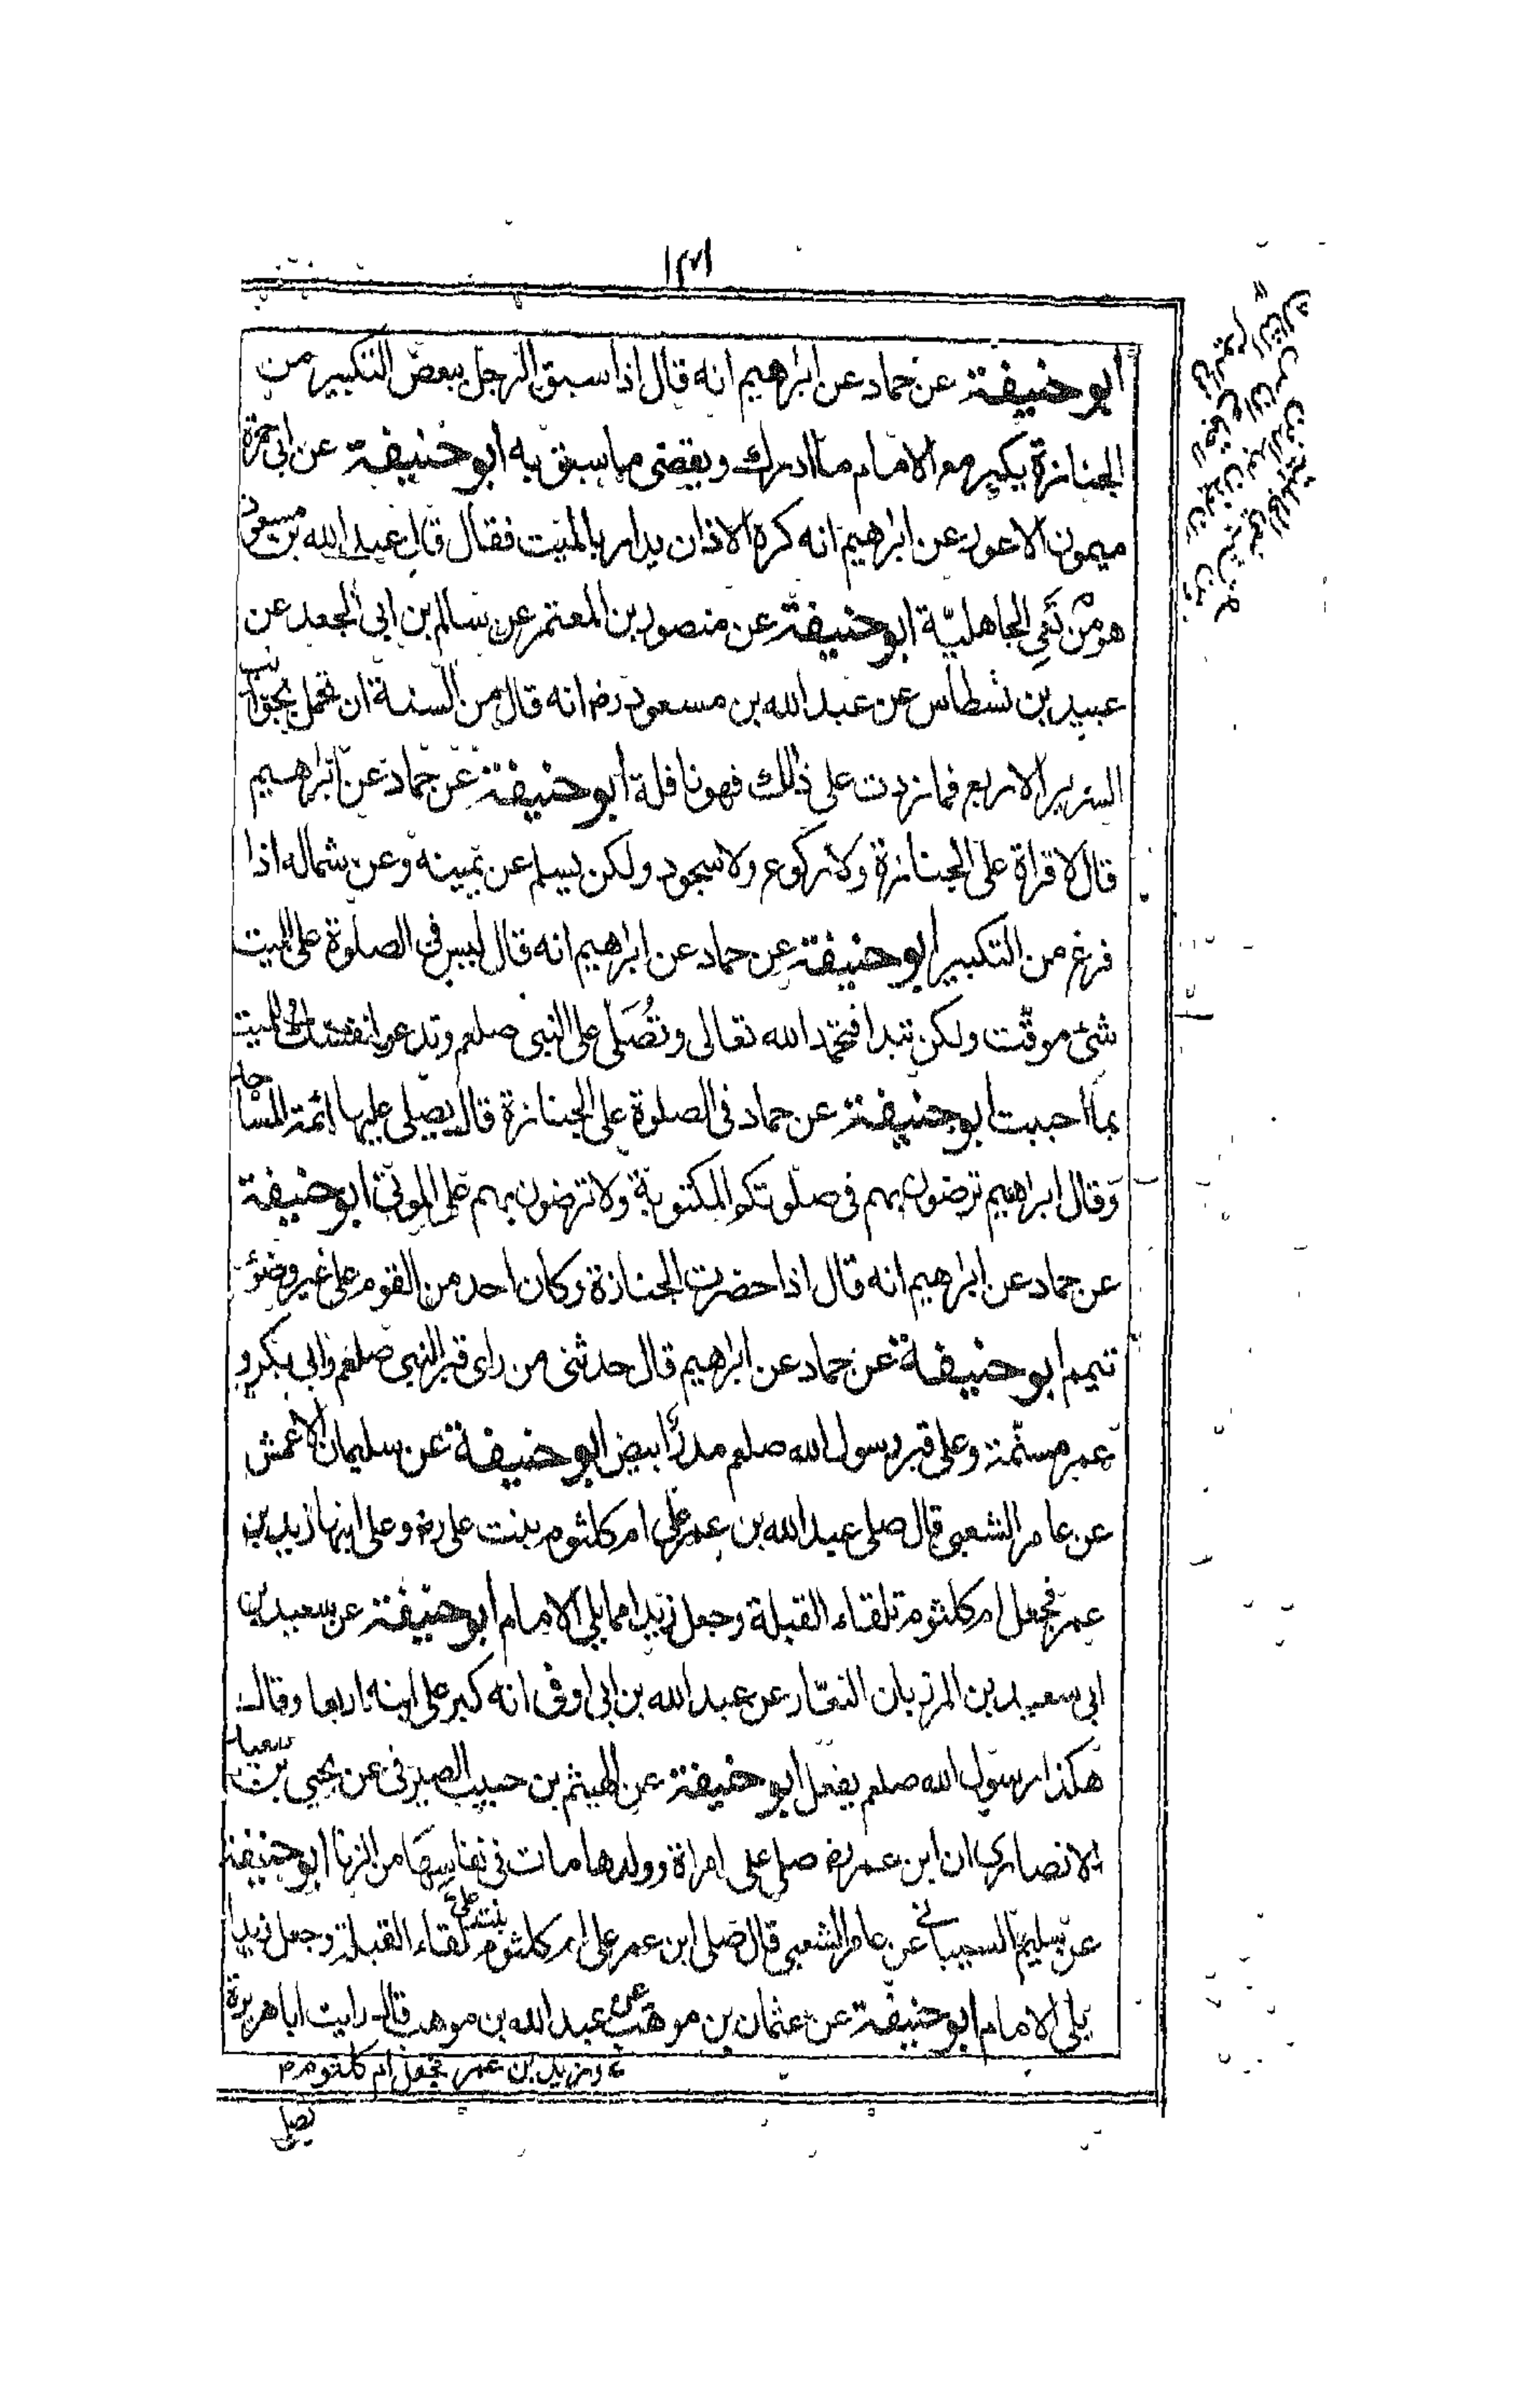 ابو حنيفة عن حماد عن ابرهيم انه قال اذا سبق الرجل ببعض التكبير من
الجنازة يكبر مع الامام ما ادرك ويقضى ما سبق به ابو حنيفة عن ابى حمزة
ميمون الاعور عن ابرهيم انه كره الاذان يدار بالميت فقال قال عبد الله بن مسعود
هو من نَعْىِ الجاهليّة ابو حنيفة عن منصور بن المعتمر عن سالم بن ابى الجعد عن
عبيد بن نسطاس عن عبد الله بن مسعود رض انه قال من السنة ان تحمل بجوانب
السرير الاربع فما زدت على ذلك فهو نافلة ابو حنيفة عن حماد عن ابرهيم
قال لا قراة على الجنازة ولا ركوع ولا سجود ولكن يسلم عن يمينه وعن شماله اذا
فرغ من التكبير ابو حنيفة عن حماد عن ابرهيم انه قال ليس فى الصلوة على الميت
شئ موقّت ولكن تبدا فتحمد الله تعالى وتُصَلى على النبى صلعم وتدعو لنفسك وللميت
بما احببت ابو حنيفة عن حماد فى الصلوة على الجنازة قال يصلى عليها ائمة المساجد
وقال ابراهيم ترضون بهم فى صلوتكم المكتوبة ولا ترضون بهم على الموتى ابو حنيفة
عن حماد عن ابرهيم انه قال اذا حضرت الجنازة وكان احد من القوم على غير وضوء
تيمم ابو حنيفة عن حماد عن ابرهيم قال حدثنى من راى قبر النبى صلعم وابى بكر و
عمر مسنّمة وعلى قبر رسول الله صلعم مدر ابيض ابو حنيفة عن سليمان الاعمش
عن عامر الشعبى قال صلى عبد الله بن عمر على ام كلثوم بنت على رض وعلى ابنها زيد بن
عمر فجعل ام كلثوم تلقاء القبلة وجعل زيدا مما يلى الامام ابو حنيفة عن سعيد بن
ابى سعيد بن المرزبان البقّار عن عبد الله بن ابى اوفى انه كبر على ابنه اربعا وقال
هكذا رسول الله صلعم يفعل ابو حنيفة عن الهيثم بن حبيب الصيرفى عن يحيى بن سعيد
الانصارى ان ابن عمر رض صلى على امراة وولدها مات فى نفاسها من الزنا ابو حنيفة
عن سليم السيبانى عن عامر الشعبى قال صلى ابن عمر على ام كلثوم بنت على تلقاء القبلة وجعل زيدا
يلى الامام ابو حنيفة عن عثمان بن موهب عن عبد الله بن موهب قال رايت ابا هريرة
وزيد بن عمر فجعل ام كلثوم
يصلى